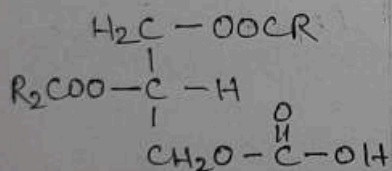 H₂C – OOCR
R₂COO – C – H
O
CH₂O – C – OH